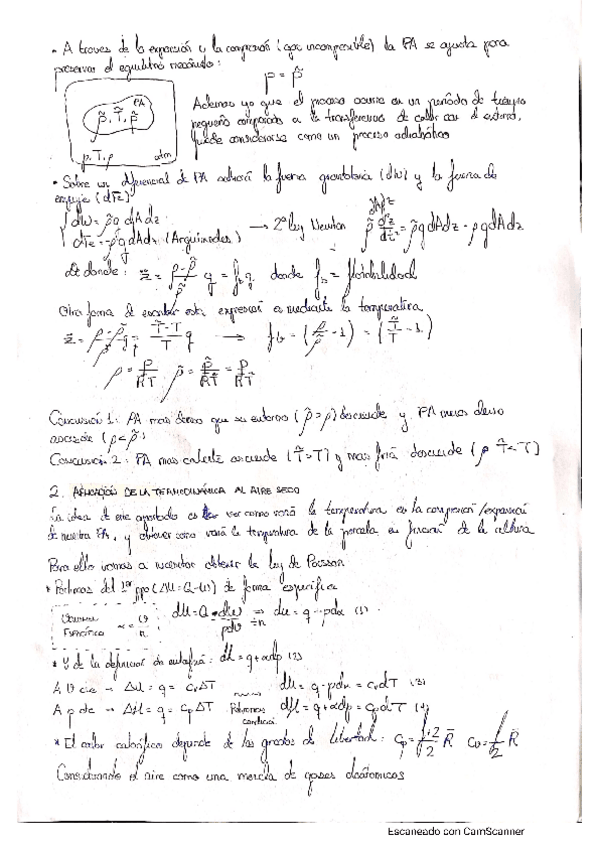 • A traves de la expansión y la compresión (gas incompresible) la PA se ajusta para
preservar el equilibrio mecánico:
p = p̃
PA
ρ̃, T̃, p̃
ρ, T, p
atm
Ademas ya que el proceso ocurre en un periodo de tiempo
pequeño comparado a la transferencia de calor con el exterior,
puede considerarse como un proceso adiabático
• Sobre un diferencial de PA actuará la fuerza gravitatoria (dW) y la fuerza de
empuje (dFz)
dW = ρ̃ g dA dz
dFz = -ρ g dA dz (Arquímedes)
→ 2ª ley Newton
De donde: z̈ = (ρ - ρ̃)/ρ̃ g = f_b g donde f_b = flotabilidad
Otra forma de escribir esta expresión es mediante la temperatura
z̈ = (ρ - ρ̃)/ρ̃ g = (T̃ - T)/T g → f_b = (ρ/ρ̃ - 1) = (T̃/T - 1)
ρ = p/RT ρ̃ = p̃/RT̃ = p/RT̃
Conclusión 1: PA mas densa que su entorno (ρ̃ > ρ) desciende y PA menos densa
asciende
Conclusión 2: PA mas caliente asciende (T̃ > T) y mas fria desciende (T̃ < T)
2. APLICACIÓN DE LA TERMODINÁMICA AL AIRE SECO
La idea de este apartado es ver como varía la temperatura en la compresión/expansión
de nuestra PA, y obtener como varía la temperatura de la parcela en función de la altura
Para ello vamos a necesitar obtener la ley de Poisson
* Partimos del 1er ppo (ΔU = Q - W) de forma específica
Volumen
Específico α = V/n
dU = Q - dW ⇒ du = q - pdα (1)
pdV ÷n
* Y de la definición de entalpía: dh = q + αdp (2)
A V cte → ΔU = q = cvΔT du = q - pdα = cvdT (3)
A p cte → ΔH = q = cpΔT dH = q + αdp = cpdT (4)
* El calor calorífico depende de los grados de libertad: cp = (f+2)/2 R cv = f/2 R
Considerando el aire como una mezcla de gases diatómicos
Escaneado con CamScanner